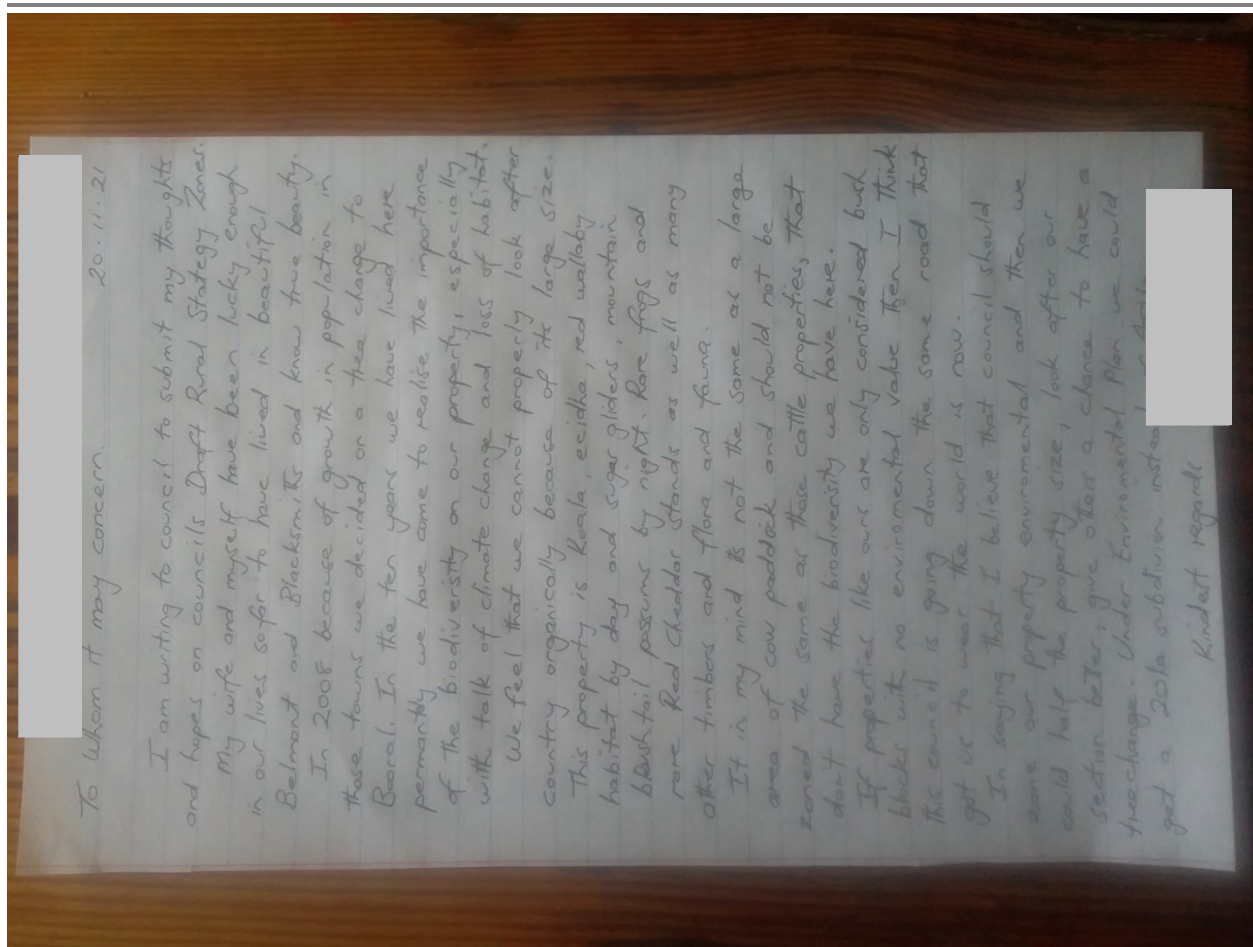 To Whom it may concern. 20.11.21
I am writing to council to submit my thoughts
and hopes on councils Draft Rural Stategy Zones.
My wife and myself have been lucky enough
in our lives sofar to have lived in beautiful
Belmont and Blacksmiths and know true beauty.
In 2008 because of growth in population in
those towns we decided on a tree change to
Booral. In the ten years we have lived here
permantly we have come to realise the importance
of the biodiversity on our property, especially
with talk of climate change and loss of habitat.
We feel that we cannot properly look after
country organically because of its large size.
This property is Koala, ecidna, red wallaby
habitat by day and suger gliders, mountain
brushtail possums by night. Rare frogs and
rare Red Cheddar stands as well as many
other timbers and flora and fauna.
It in my mind is not the same as a large
area of cow paddock and should not be
zoned the same as those cattle properties, that
don't have the biodiversity we have here.
If properties like ours are only considered bush
blocks with no enviromental value then I think
this council is going down the same road that
got us to wear the world is now.
In saying that I believe that council should
zone our property enviromental and then we
could half the property size, look after our
section better, give others a chance to have a
treechange. Under Enviromental Plan we could
get a 20ha subdivion
Kindest regards